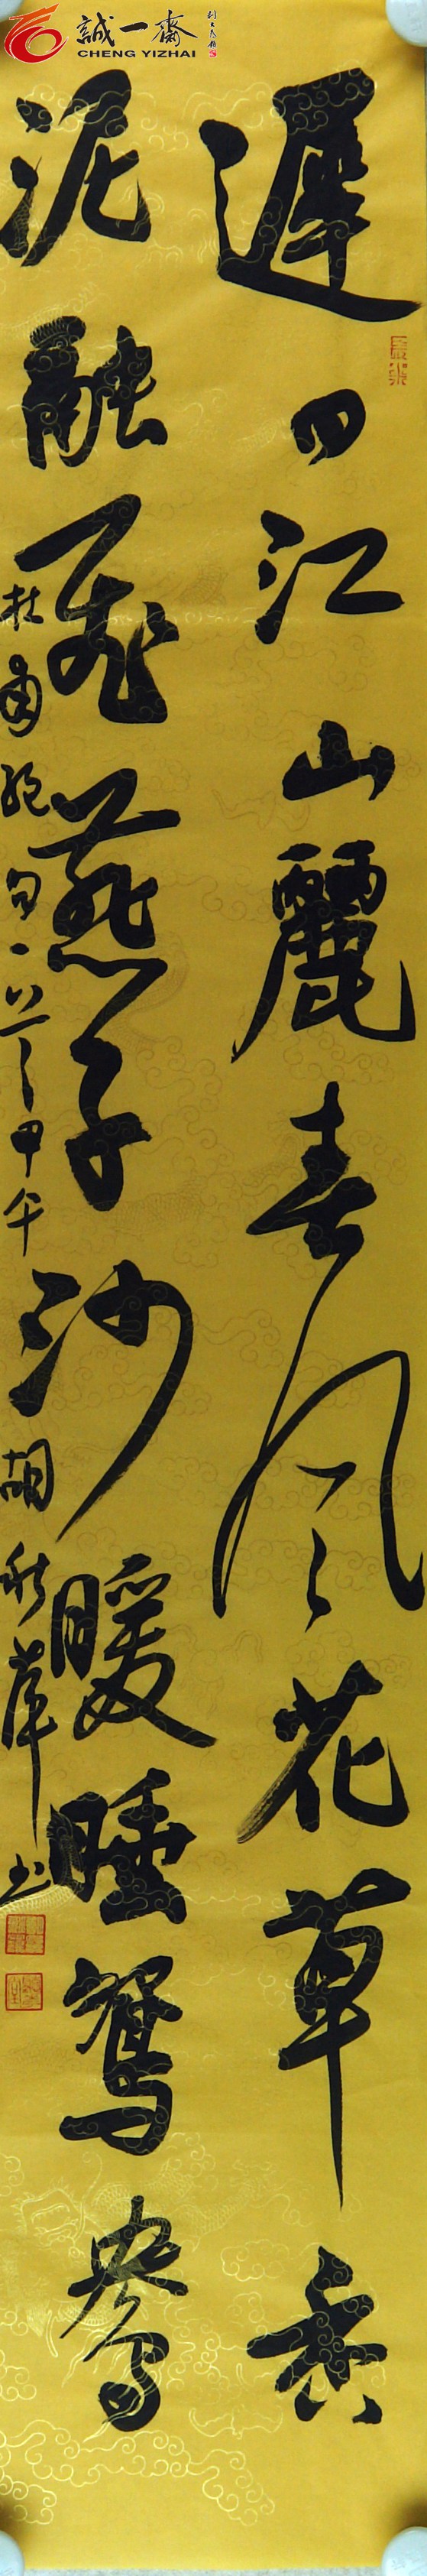 誠一齋
CHENG YIZHAI
遲日江山麗春風花草香
泥融飛燕子沙暖睡鴛鴦
杜甫絕句一首甲午胡秋萍书